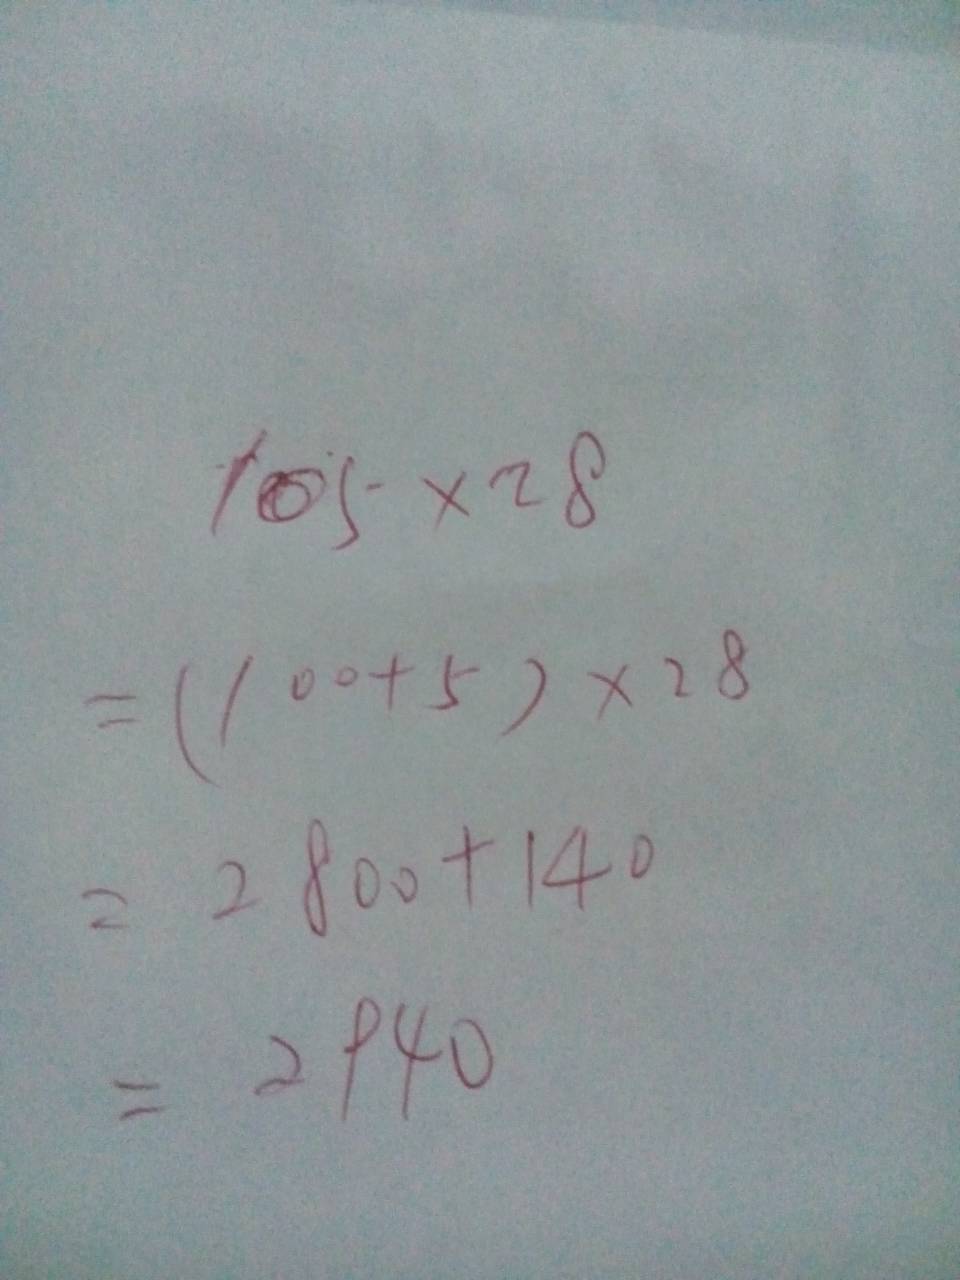 105×28
=(100+5)×28
=2800+140
=2940